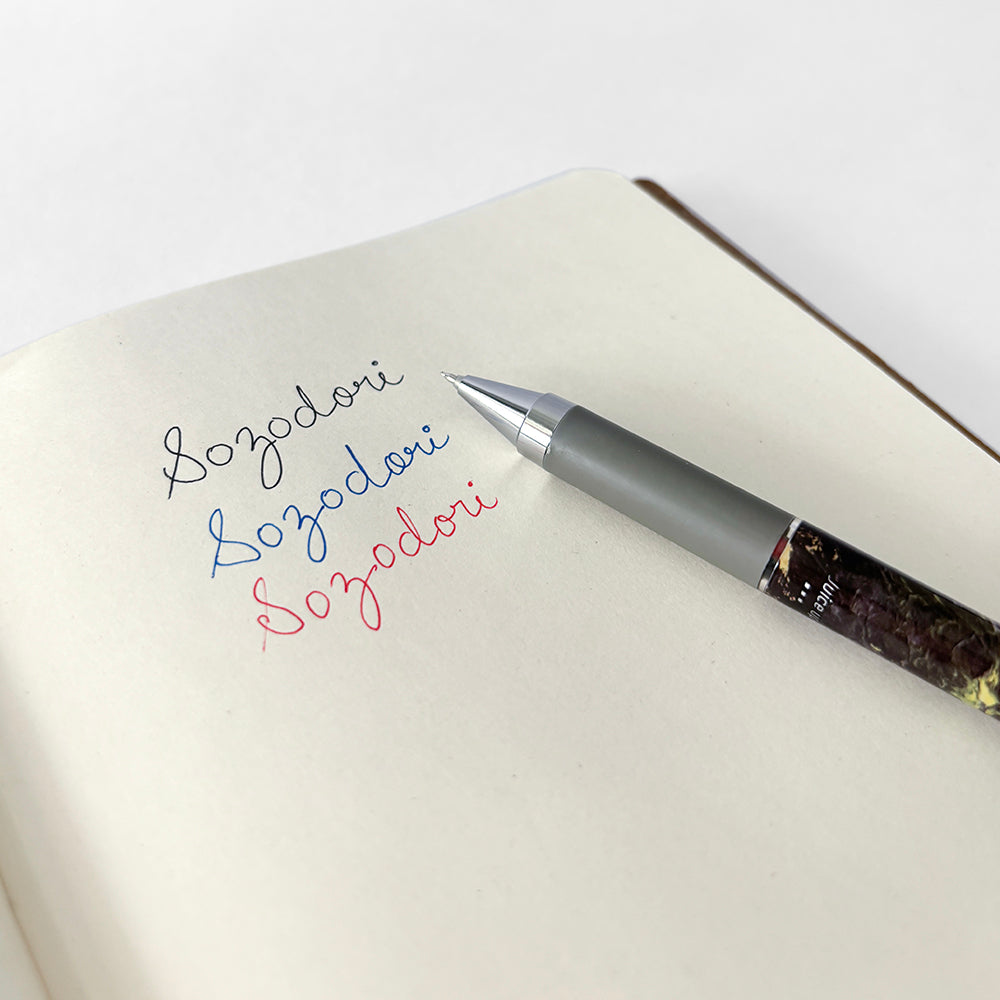 Sozodori
Sozodori
Sozodori
Juice